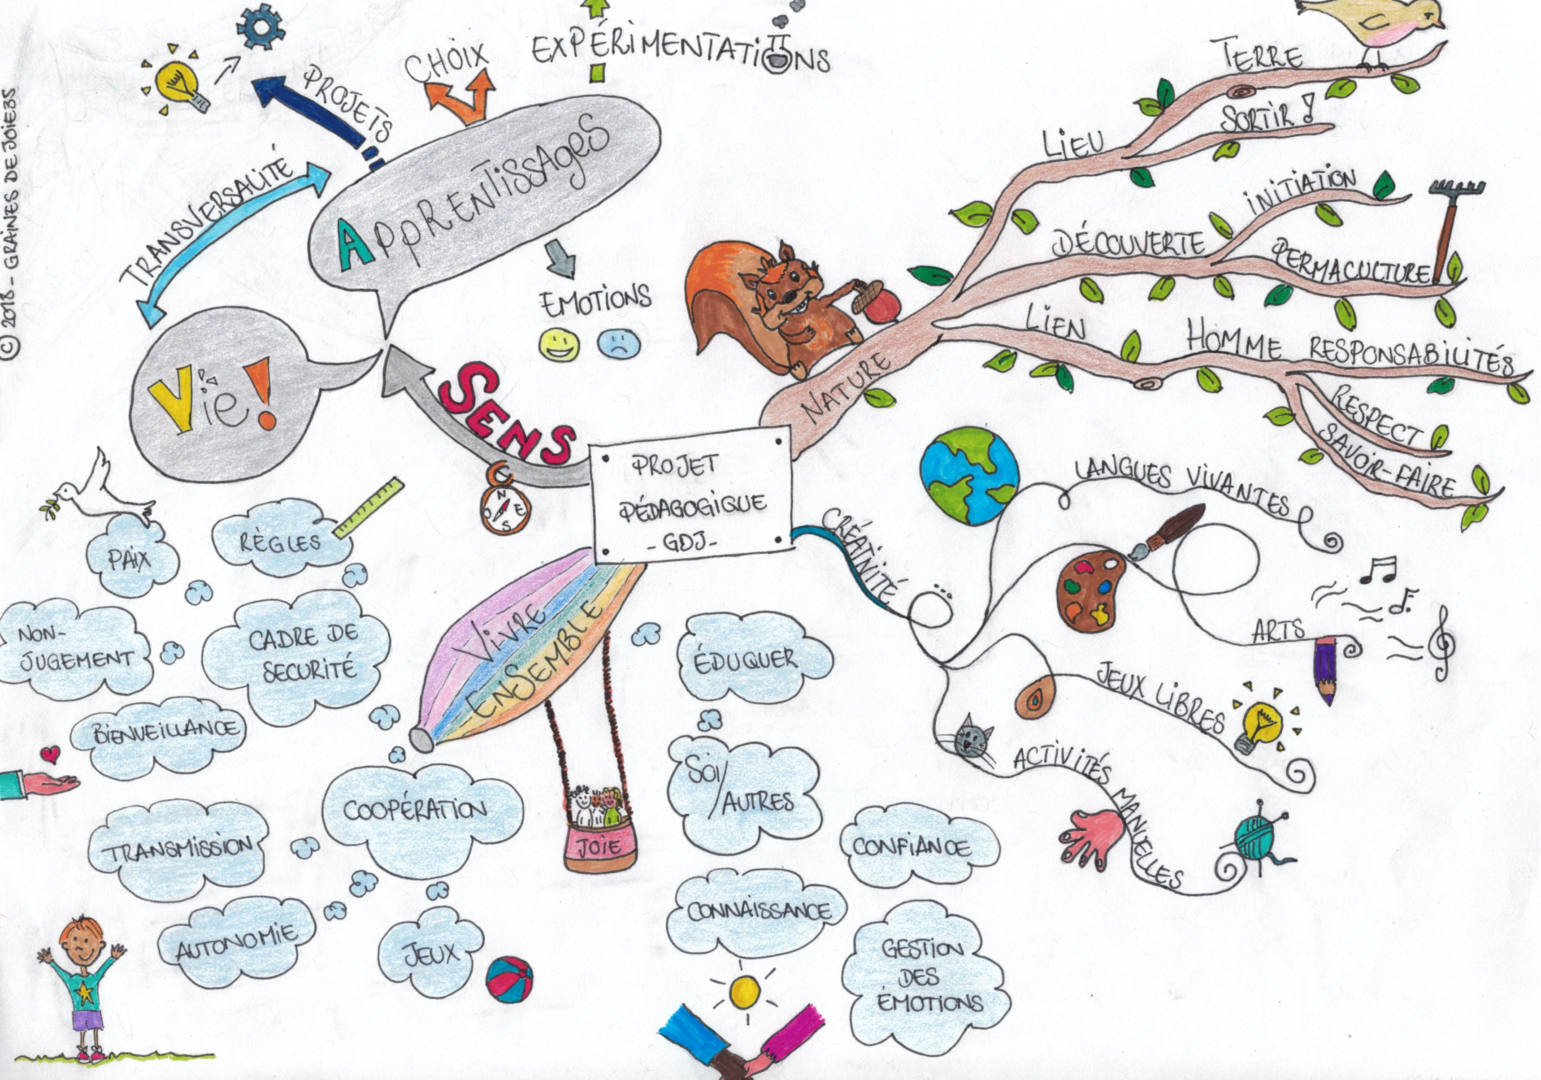 © 2018 - GRAINES DE JOIE35
PROJETS
CHOIX
EXPÉRIMENTATIONS
TRANSVERSALITÉ
APPRENTISSAGES
EMOTIONS
Vie!
SENS
N
E
S
O
PROJET
PÉDAGOGIQUE
- GDJ -
NATURE
LIEU
TERRE
SORTIR !
DÉCOUVERTE
INITIATION
PERMACULTURE
LIEN
HOMME
RESPONSABILITÉS
RESPECT
SAVOIR-FAIRE
CRÉATIVITÉ
LANGUES VIVANTES
ARTS
JEUX LIBRES
ACTIVITÉS MANUELLES
VIVRE
ENSEMBLE
JOIE
PAIX
RÈGLES
NON-
JUGEMENT
CADRE DE
SECURITÉ
BIENVEILLANCE
COOPÉRATION
TRANSMISSION
AUTONOMIE
JEUX
ÉDUQUER
SOI/
AUTRES
CONFIANCE
CONNAISSANCE
GESTION
DES
ÉMOTIONS